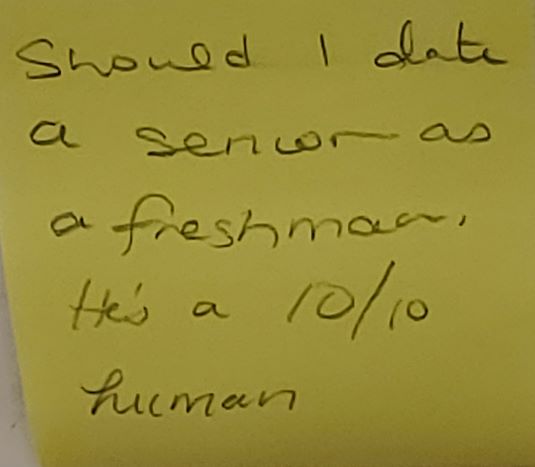 Should I date
a senior as
a freshman.
He's a 10/10
human